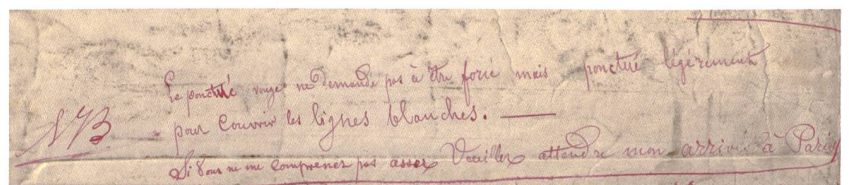 Le ponctué rouge ne demande pas à être forcé mais ponctué légèrement
NB. pour couvrir les lignes blanches. —
Si vous ne me comprenez pas assez Veuillez attendre mon arrivée à Paris